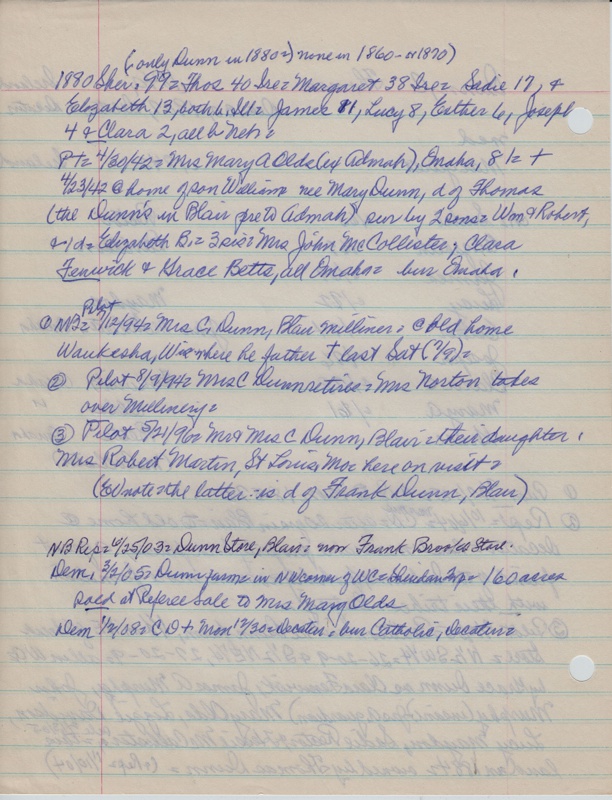 (= only Dunn in 1880=) none in 1860 - or 1870)
1880 Sher: 99= Thos 40 Ire= Margaret 38 Ire= Sadie 17, &
Elizabeth 13, both b. Ill= James 11, Lucy 8, Esther 6, Joseph
4 & Clara 2, all b Neb=
Pt= 4/30/42= Mrs Mary A Olds (ex Admah), Omaha, 81= +
4/23/42 @ home of son William= nee Mary Dunn, d of Thomas
(the Dunn's in Blair pre to Admah) sur by 2 sons= Wm & Robert,
& 1 d= Elizabeth B.= 3 sis= Mrs John McCollister; Clara
Fenwick & Grace Betts, all Omaha= bur Omaha.
Pilot
① NB= 7/12/94= Mrs C. Dunn, Blair milliner= @ old home
Waukesha, Wis= where he father + last Sat (7/9)=
② Pilot 8/9/94= Mrs C Dunn retires= Mrs Norton takes
over Millinery=
③ Pilot 5/21/96= Mr & Mrs C Dunn, Blair= their daughter,
Mrs Robert Martin, St Louis, Mo= here on visit=
note= the latter is d of Frank Dunn, Blair)
NB Rep= 6/25/03= Dunn Store, Blair= now Frank Brooks Store.
Dem, 3/2/05= Dunn farm= in NW corner of WC= Sheridan Twp= 160 acres
sold at Referee Sale to Mrs Mary Olds
Dem 1/2/08= C D + Mon 12/30= Decatur= bur Catholic, Decatur=